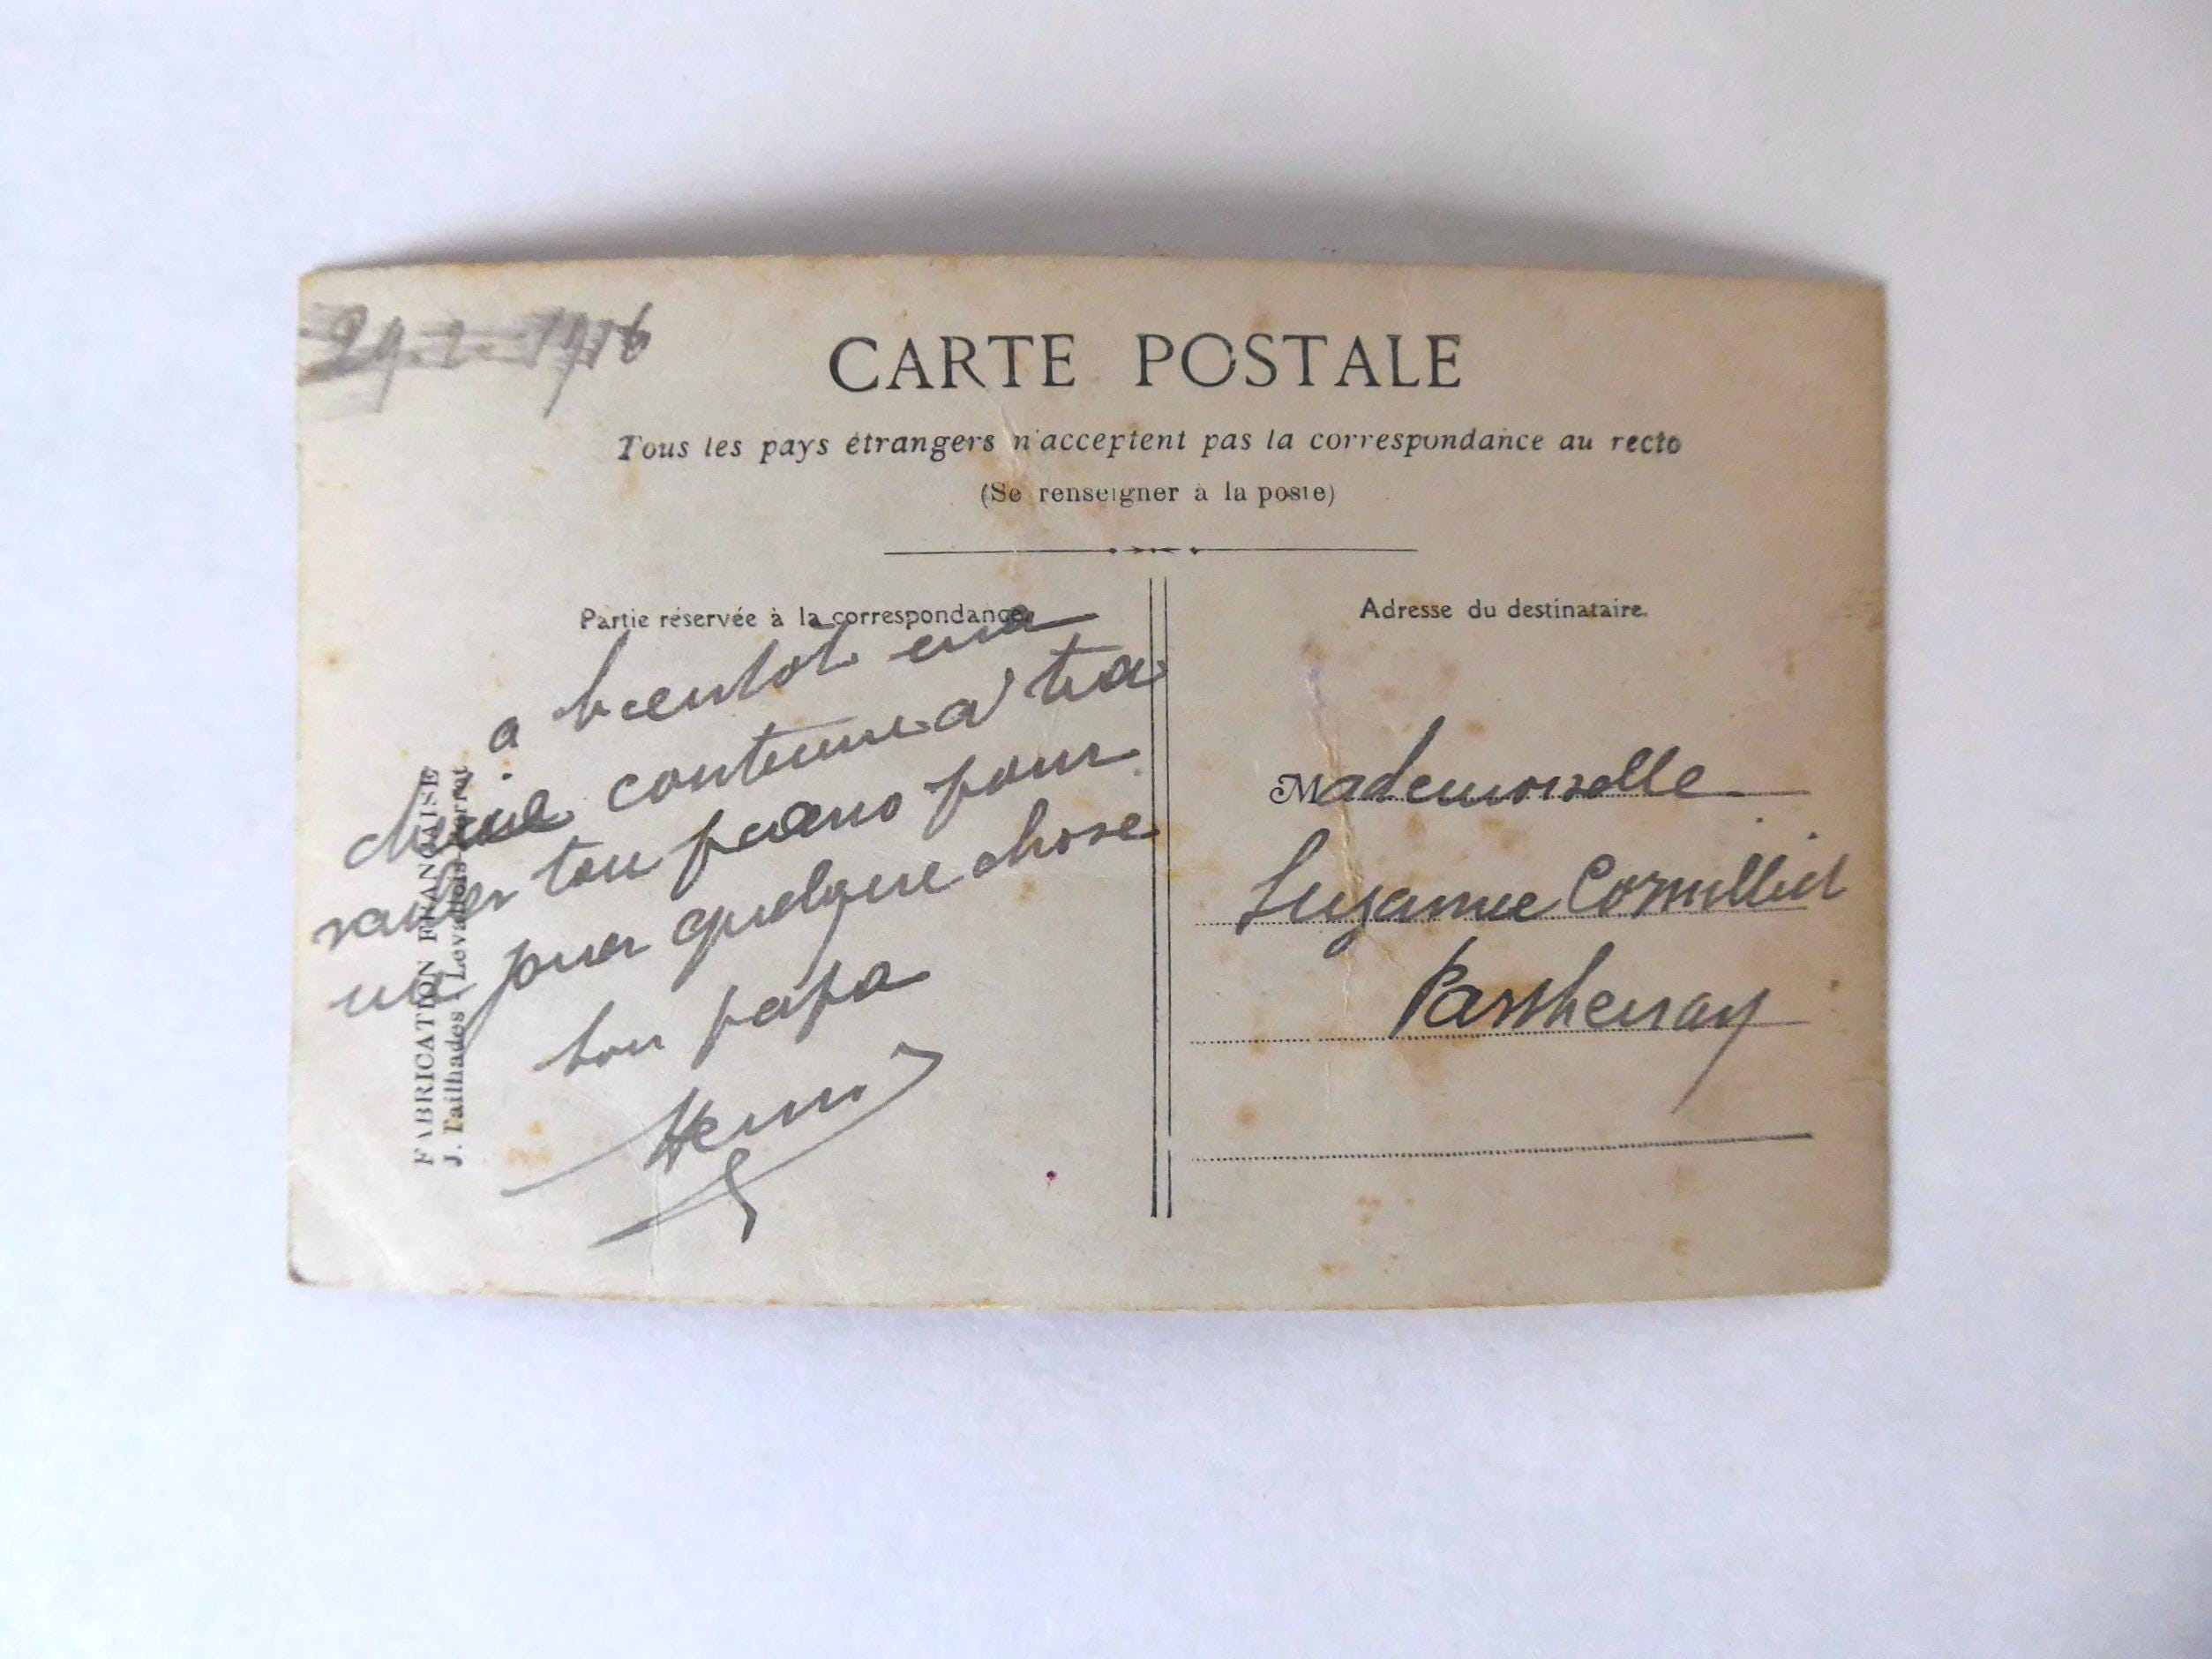 29.2.1916
CARTE POSTALE
Tous les pays étrangers n'acceptent pas la correspondance au recto
(Se renseigner à la poste)
Partie réservée à la correspondance
Adresse du destinataire.
a bientot ma
cherie continue a tra
vailler ton piano pour
me jouer quelque chose
ton papa
Henri
Mademoiselle
Suzanne Cornilliet
Parthenay
FABRICATION FRANÇAISE
J. Tailhades, Levallois-Perret